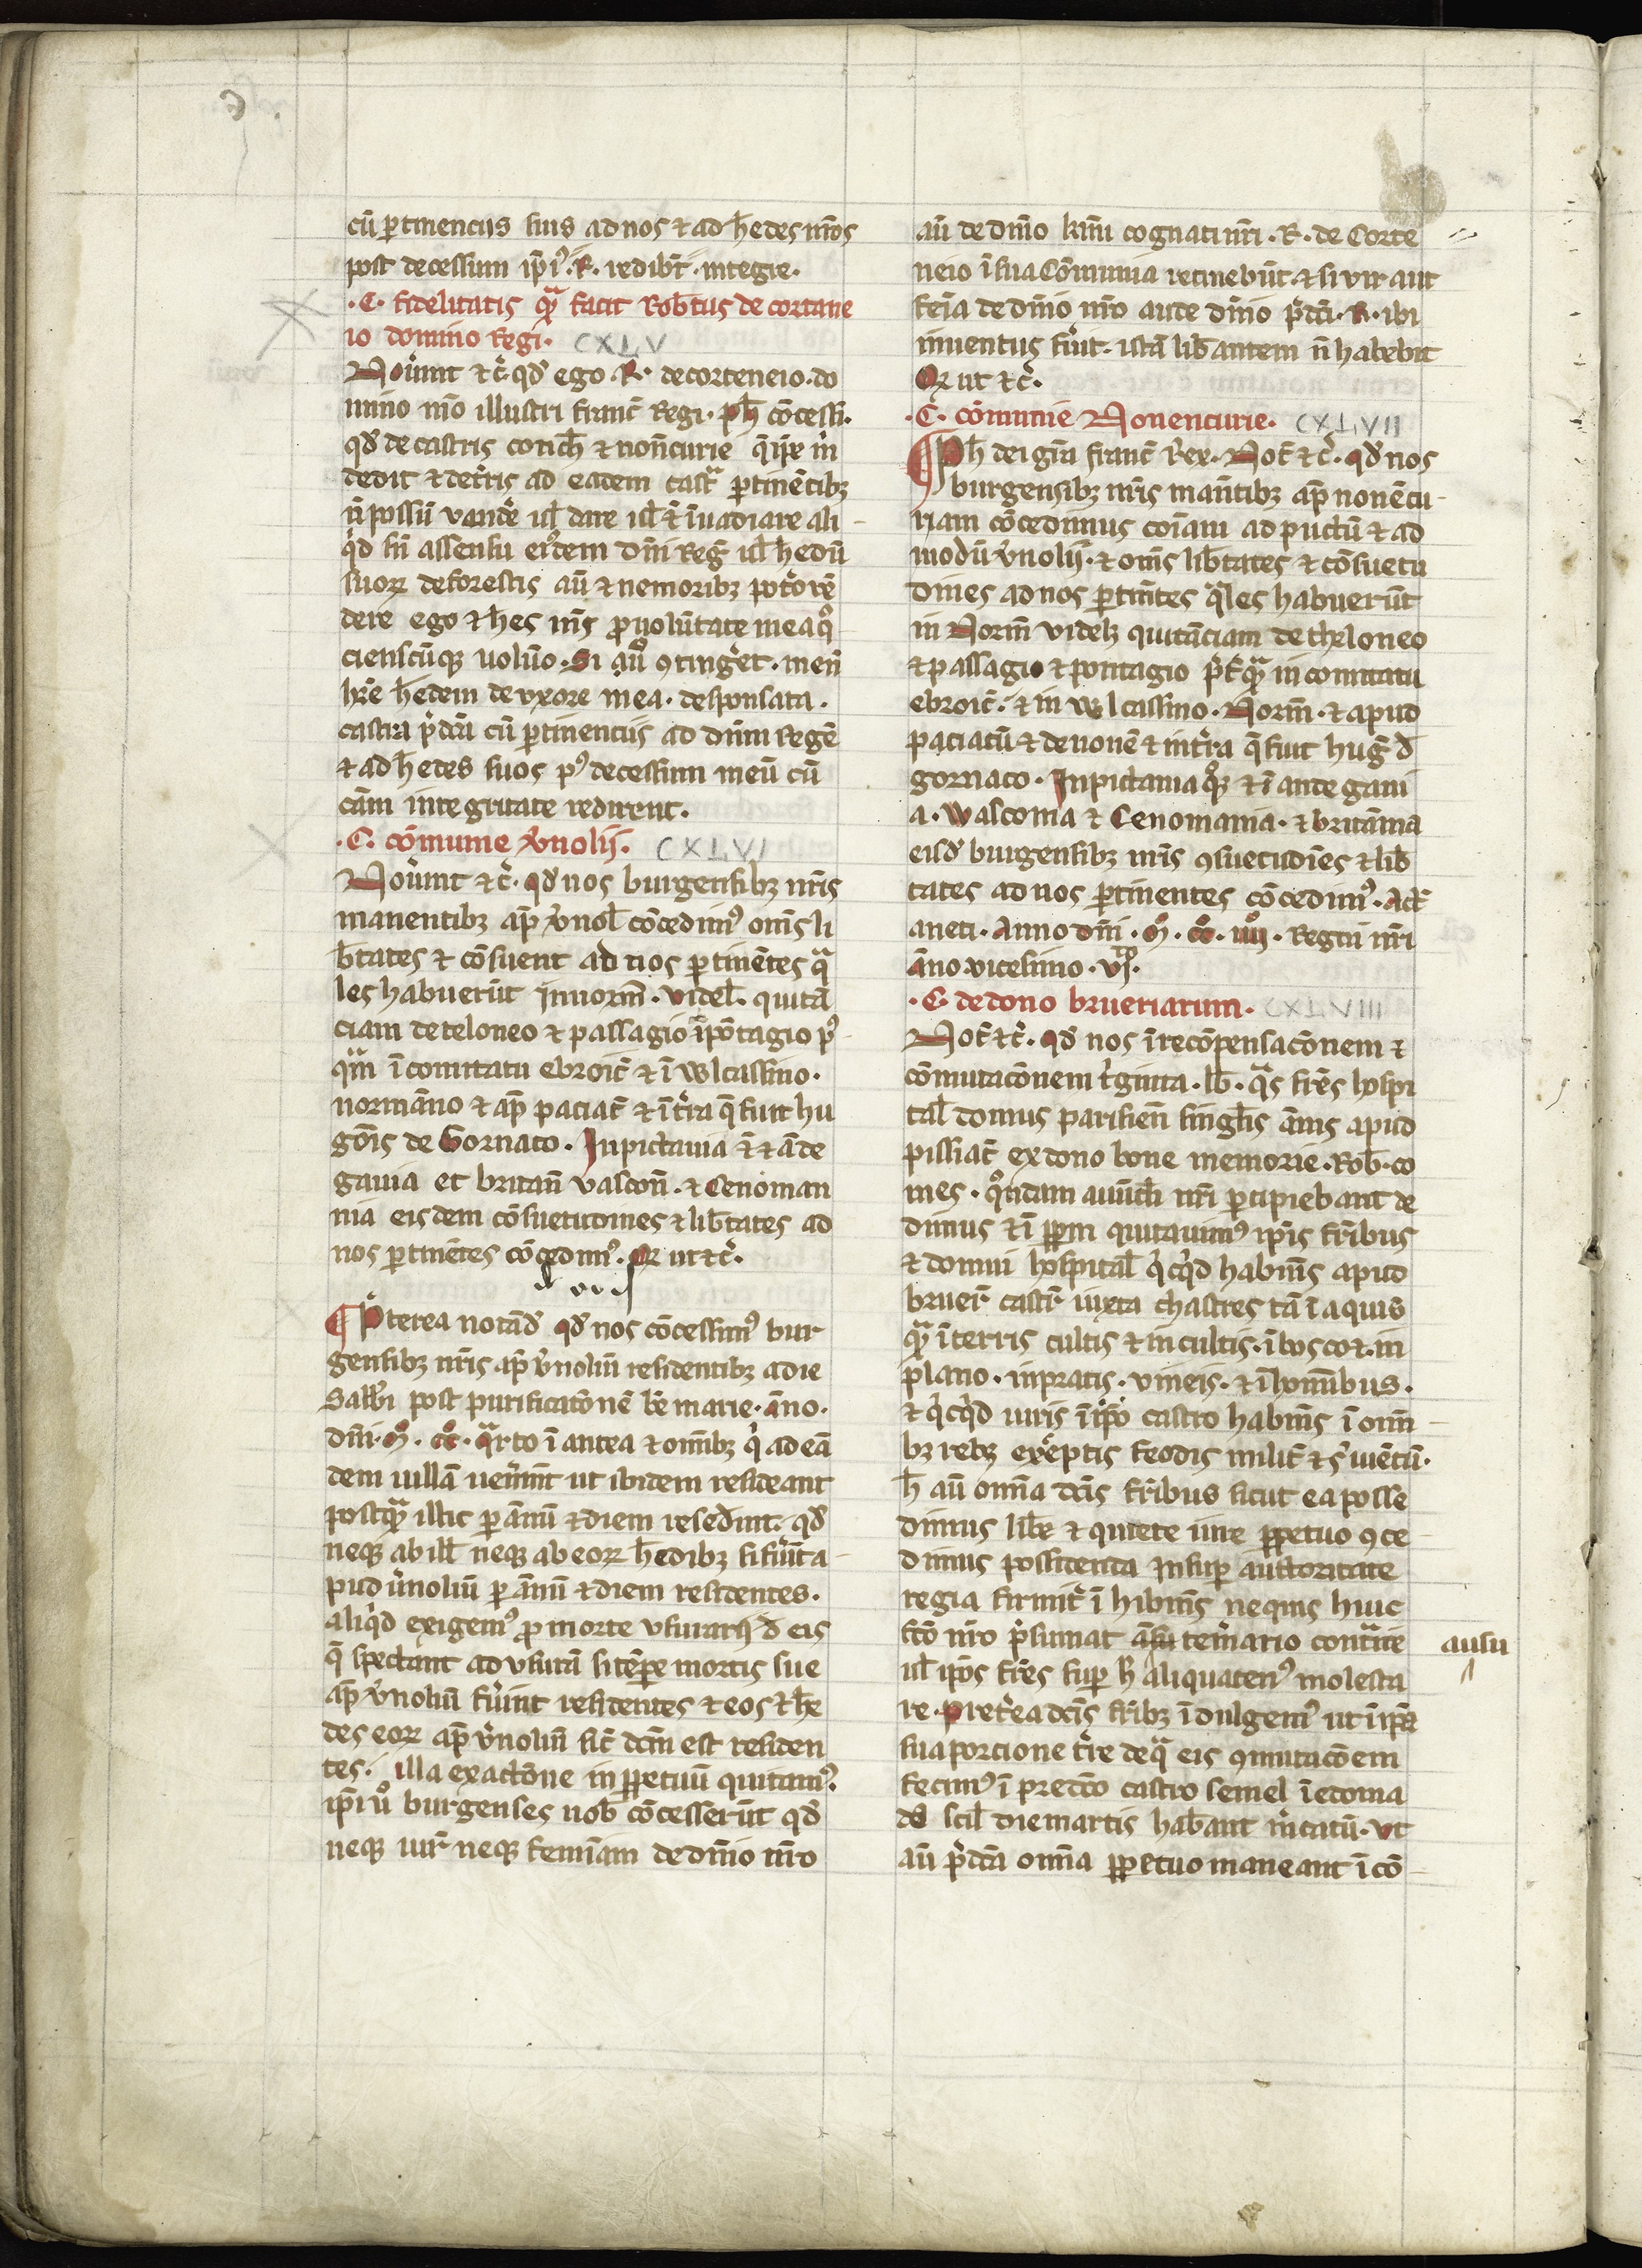 cū ꝑtinenciis suis ad nos ⁊ ad h̄edes nr̄os
post decessum ip̄iꝰ .R. redibt̄ integre.
.C. fidelitatis qᷓ facit Rob̄tus de cortane
io domino Regi. CXLV
Nouͥnt ⁊c̄. qd̓ ego .R. de corteneio . do
mino nr̄o illustri franc̄ Regi . ph̄ cōcessi.
qd̓ de castris conch̄ ⁊ non̄curie q̄ ip̄e m̄
dedit ⁊ de tr̄is ad eadem castᷓ ꝑtinētibꝫ
n̄ possū vandē ul̄ dare ul̄ ī uadiare ali
qͥd sn̄ assensu eiꝰdem dn̄i Reḡ ul̄ hedū
suoꝝ de forestis aū ⁊ nemoribꝫ pot̓o vē
dere ego ⁊ hes mꝰ ꝓ uolūtate mea qͦ
cienscūqꝫ voluo . Si aūͦ ꝯting̓et . men̄
hr̄e h̄edem de vxore mea . desponsata .
castra p̄dc̄a cū ꝑtinenciis ad dn̄m Regē
⁊ ad h̄edes suos pꝰ decessum meū cū
cām integritate redirent.
.C. cōmunie v̄nolii. CXLVI
Nouͥnt ⁊c̄. qd̓ nos burgensibꝫ nr̄is
manentibꝫ ap̄ v̄nol̄ cōcedimꝰ om̄s li
b̄tates ⁊ cōsuent ad nos ꝑtinētes qᷓ
les habuerūt in norm̄ . videl̄ . quitā
ciam de teloneo ⁊ passagio ⁊ pōtagio pͥ
qᷓm ī comitatu ebroic̄ ⁊ ī wlcassino .
normāno ⁊ ap̄ paciac̄ ⁊ ī t̄ra q̄ fuit hu
gōis de Gornaco . In pictauia ⁊ ⁊ āde
gauia et britan̄ vascon̄ . ⁊ Cenoman
nia eisdem cōsuetudines ⁊ lib̄tates ad
nos ꝑtinētes cōcedimꝰ . Qꝛ ut ⁊c̄.
P̄terea notād̓ qd̓ nos cōcessimꝰ bur
gensibꝫ nr̄is ap̄ v̄noliū residentibꝫ a die
Sabbi post purificatōnē bē marie . āno .
dn̄i . mͦ . ccͦ . qᷓrto ī antea ⁊ om̄ibꝫ qͥ ad eā
dem uillā uen̄int ut ibidem resideant
postqᷓ illic ꝑ ānū ⁊ diem resedint . qd̓
neqꝫ ab ill̄ neqꝫ ab eoꝝ h̄edibꝫ si fūint a
pud v̄noliū ꝑ ānū ⁊ diem residentes .
aliqͥd exigemꝰ ꝓ morte vsurariꝯ d̓ eis
q̄ spectant ad vsurā si tēpe mortis sue
ap̄ v̄noliū fūint residentes ⁊ eos ⁊ he
des eoꝝ ap̄ v̄noliū sic̄ dc̄m est residen
tes . illa exactōne in ꝑpetuū quitamꝰ .
ip̄i ūͦ burgenses nob̄ cōcesserūt qd̓
neqꝫ uir̄ neqꝫ feminam de dn̄io nr̄o
aū de dn̄io kr̄mi cognati nr̄i . R . de Corte
neio ī sua Cōmunia retinebūt ⁊ si vir aut
fēīa de dn̄io nr̄o aut de dn̄io p̄dc̄i . R . ibi
inuentus fūit . istā lib̄antem n̄ habebit
Qꝛ ut ⁊c̄.
.C. cōmunie Nonencurie. CXLVII
Ph̄ dei grā franc̄ Rex . Not̄ ⁊c̄ . qd̓ nos
burgensibꝫ nr̄is man̄tibꝫ ap̄ nonēcu
riam cōcedimus coīam ad puctū ⁊ ad
modū v̄nolii . ⁊ om̄s lib̄tates ⁊ cōsuetu
dines ad nos ꝑtinētes qᷓles habuerūt
in Norm̄ videlꝫ quitāciam de theloneo
⁊ passagio ⁊ pontagio p̄t̄qᷓ in comitatu
ebroic̄ . ⁊ in wlcassino . Norm̄ . ⁊ apud
paciatū ⁊ de nonē ⁊ int̓ra q̄ fuit huḡ d̓
gornaco . In pictauia qͦꝫ ⁊ ī ande gaui
a . wasconia ⁊ Cenomania . ⁊ britānia
eisd̓ burgensibꝫ nr̄is ꝯsuetudīes ⁊ lib̄
tates ad nos ꝑtinentes cōcedimꝰ . Act̄
aneti . Anno dn̄i . mͦ . ccͦ . iiiiͦ . Regni nr̄i
āno vicesimo . vͦ .
.C. de dono brueriarum. CXLVIII
Not̄ ⁊c̄ . qd̓ nos ī recōpensacōnem ⁊
cōmutacōnem t̓ginta . lb̄ . qᷓs fr̄es hospi
tal̄ domus parisien̄ singl̄is ānis apud
pissiac̄ ex dono bone memorie . Rob̄ . co
mes . qͦndam auūcl̄i nr̄i ꝑcipiebant de
dimus ⁊ ī ꝑpm̄ quitauimꝰ ip̄is fr̄ibus
⁊ domui hospital̄ qͥcqͥd habuīꝰ apud
bruer̄ castr̄ iuxta chastres tā ī aquis
qᷓ ī terris cultis ⁊ in cultis . ī bosco ⁊ . in
plano . in pratis . vineis . ⁊ ī homībus .
⁊ qͥcqͥd iuris ī ip̄o castro habuīꝰ ī om̄i
bꝫ rebꝫ exceptis feodis milit̄ ⁊ s̓uiētū .
h̄ aū om̄ia dc̄is fr̄ibus sicut ea posse
dimus libe ⁊ quiete iure ꝑpetuo ꝯce
dimus possidenda Insuꝑ auctoritate
regia firmit̄ ī hibuīꝰ ne quis huic
fc̄o nr̄o p̄sumat ausu tem̄ario contᷓire
ul̄ ip̄os fr̄es suꝑ h̄ aliquatenꝰ molesta
re . pret̓ea dc̄is fr̄ibꝫ īdulgemꝰ ut ī ip̄a
sua porcione t̓re de qᷓ eis ꝯmutacōem
fecimꝰ ī predc̄o castro semel ī ebdoma
de scil̄ die martis hab̄ant m̓catū . vt
aū p̄dc̄a om̄ia ꝑpetuo maneant ī cō
ausu